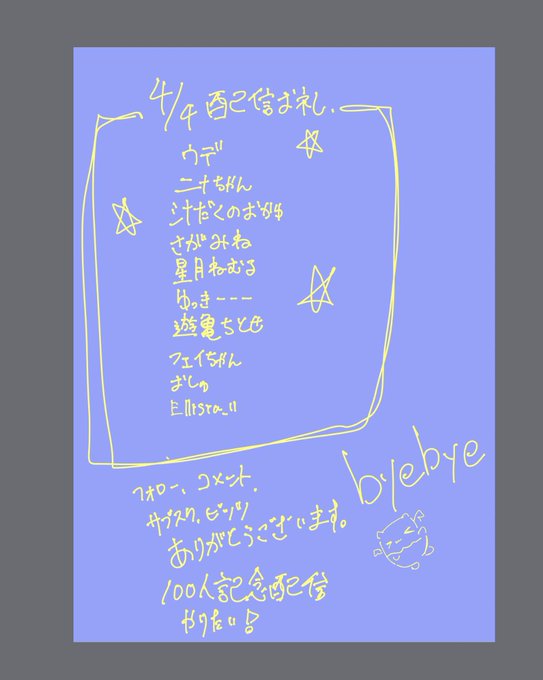 4/4 配信お礼.
ウデ
ニナちゃん
汁だくのおかゆ
さがみね
星月ねむる
ゆっきーーー
遊亀ちとせ
フェイちゃん
おしゅ
フォロー、コメント、
サブスク、ビッツ
ありがとうございます。
byebye
100人記念配信
やりたい!